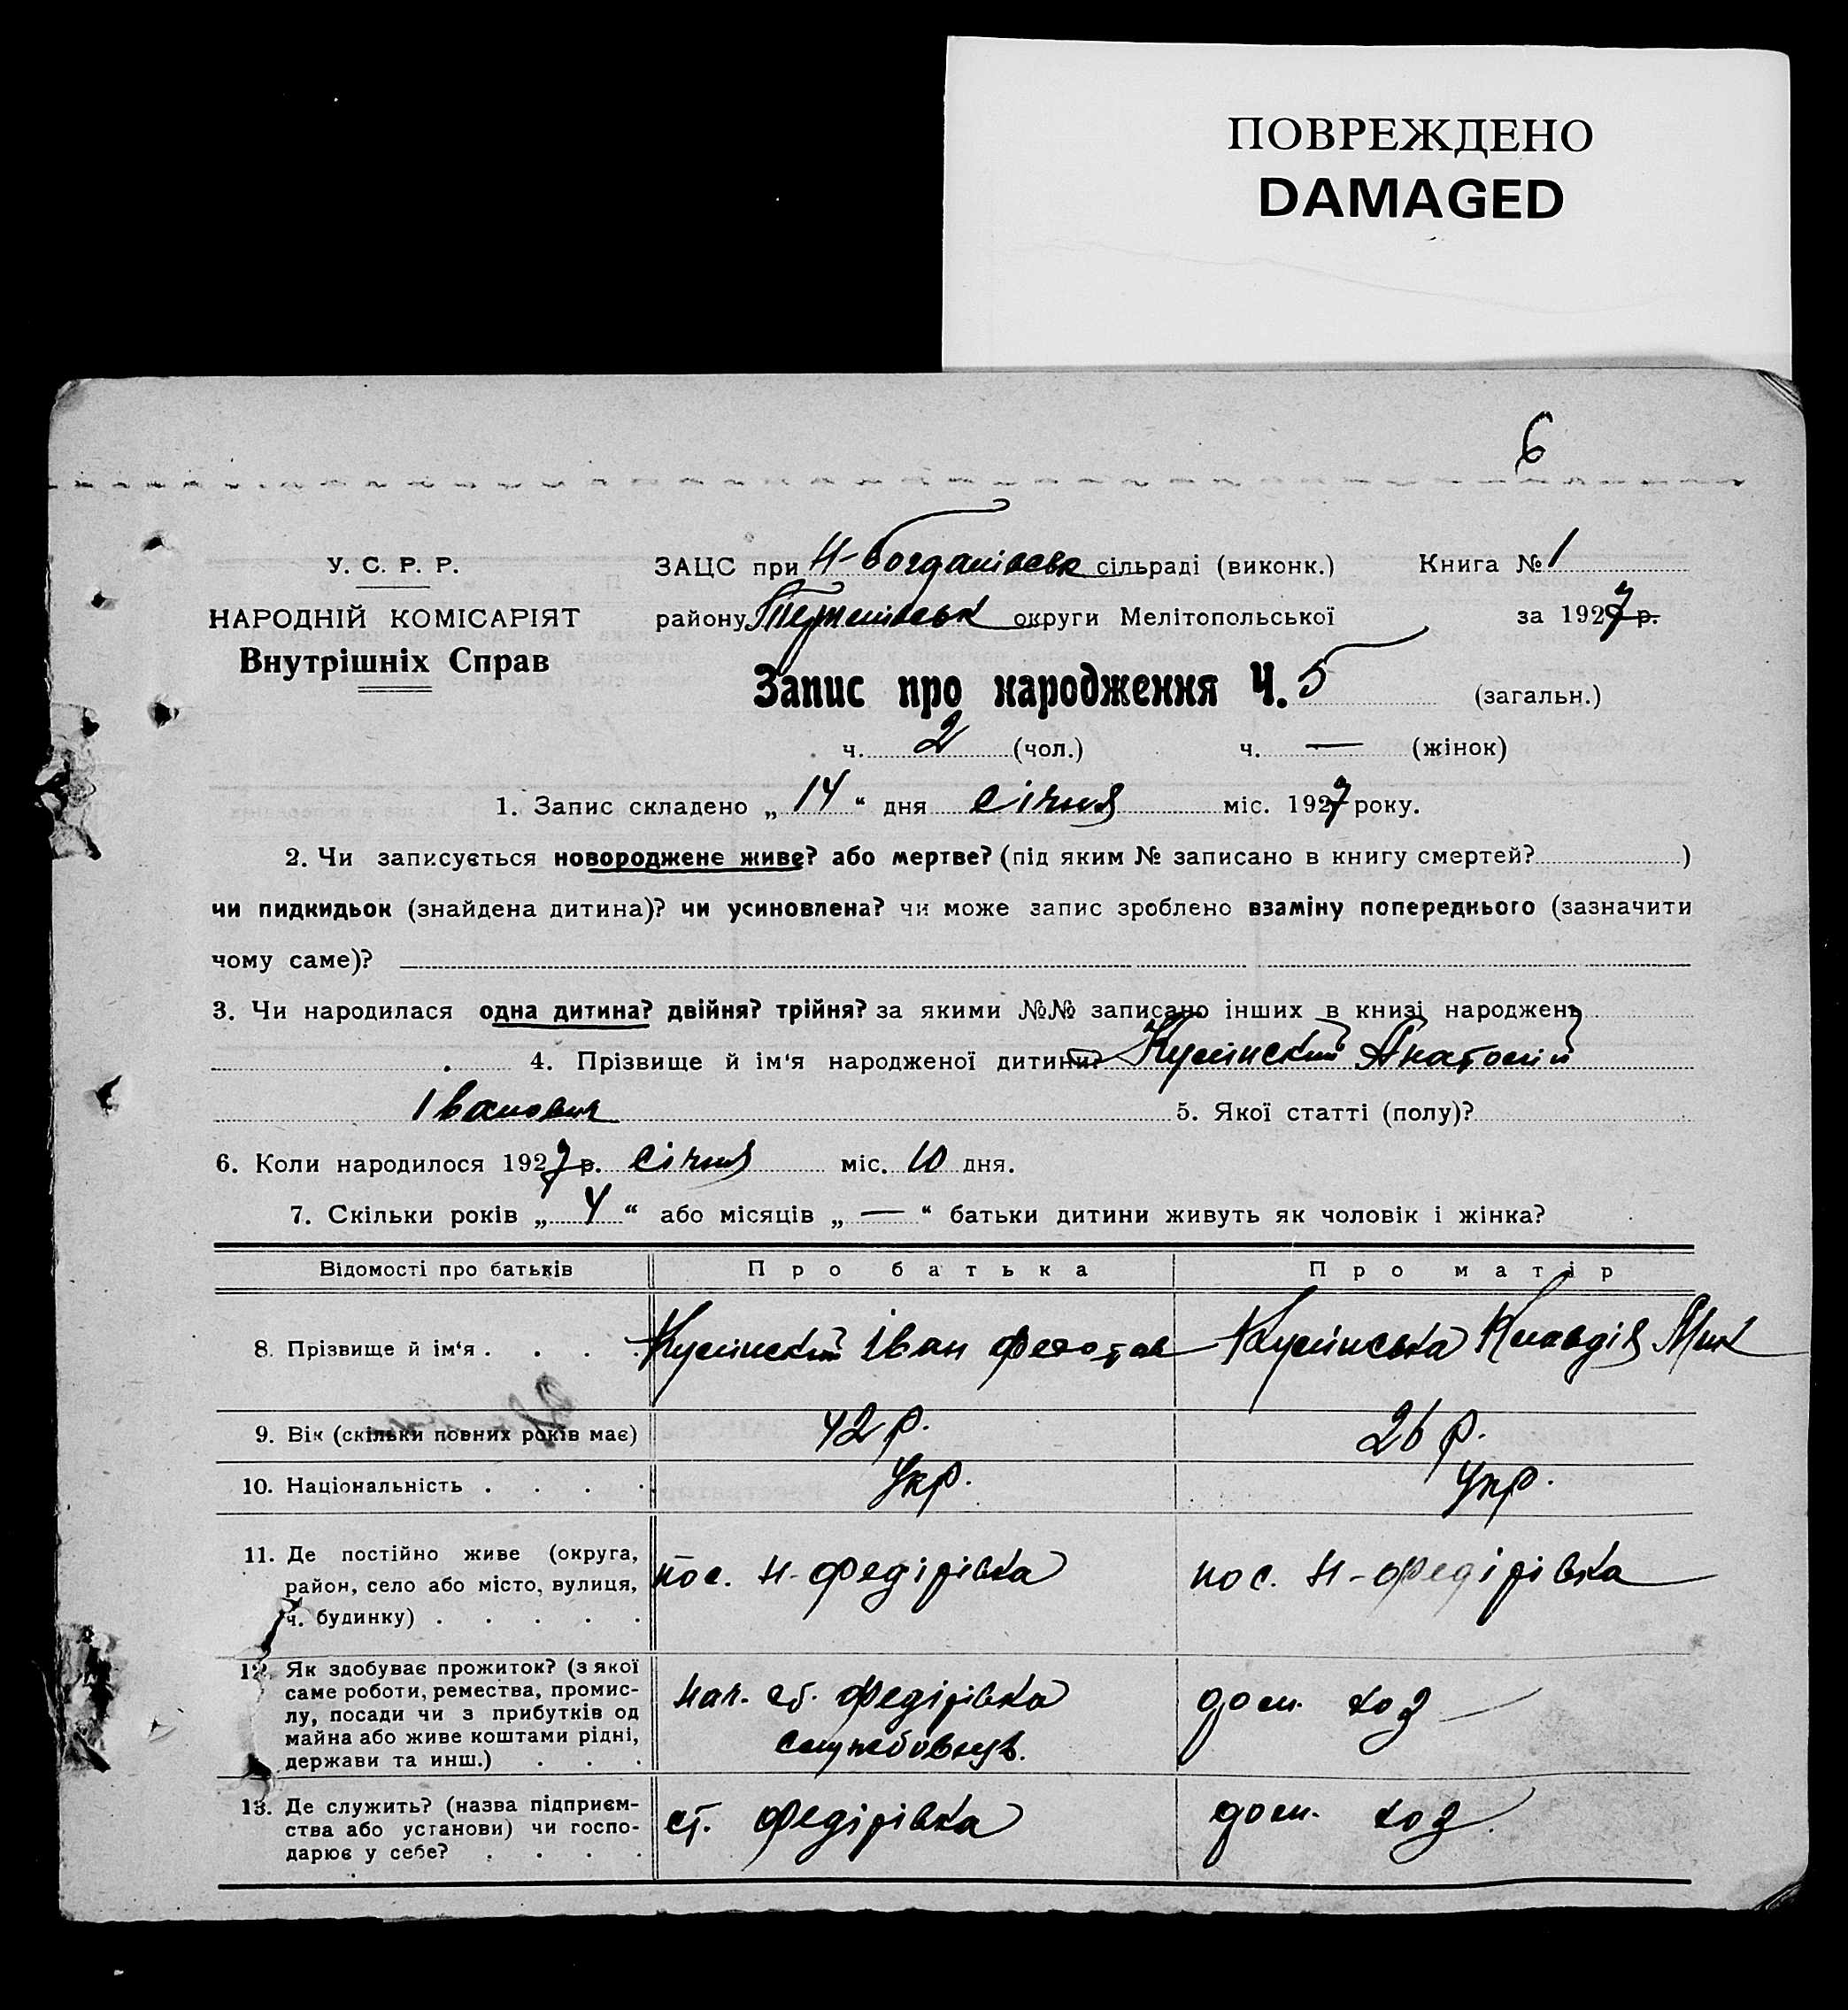 ПОВРЕЖДЕНО
DAMAGED
6
У. С. Р. Р.
НАРОДНІЙ КОМІСАРІЯТ
Внутрішніх Справ
ЗАЦС при Н-Богданівськ сільраді (виконк.) Книга № 1
району округи Мелітопольської за 1927 р.
Запис про народження Ч. 5 (загальн.)
ч. 2 (чол.) ч. — (жінок)
1. Запис складено „ 14 “ дня січня міс. 1927 року.
2. Чи записується новороджене живе? або мертве? (під яким № записано в книгу смертей? )
чи пидкидьок (знайдена дитина)? чи усиновлена? чи може запис зроблено взаміну попереднього (зазначити
чому саме)?
3. Чи народилася одна дитина? двійня? трійня? за якими №№ записано інших в книзі народжень
4. Прізвище й ім‘я народженої дитини? Анатолій
Іванович 5. Якої статті (полу)?
6. Коли народилося 1927 р. січня міс. 10 дня.
7. Скільки років „ 4 “ або місяців „ — “ батьки дитини живуть як чоловік і жінка?
Відомості про батьків Про батька Про матір
8. Прізвище й ім‘я . . . . Іван Федотов Клавдія Мик
9. Вік (скільки повних років має) 42 р. 26 р.
10. Національність . . . . Укр. Укр.
11. Де постійно живе (округа,
район, село або місто, вулиця,
ч. будинку) . . . . . пос. Н-Федірівка пос. Н-Федірівка
12. Як здобуває прожиток? (з якої
саме роботи, ремества, промис-
лу, посади чи з прибутків од
майна або живе коштами рідні,
держави та инш.) . . . нач. ст. Федірівка дом. хоз
службовець.
13. Де служить? (назва підприєм-
ства або установи) чи госпо-
дарює у себе? . . . . ст. Федірівка дом. хоз